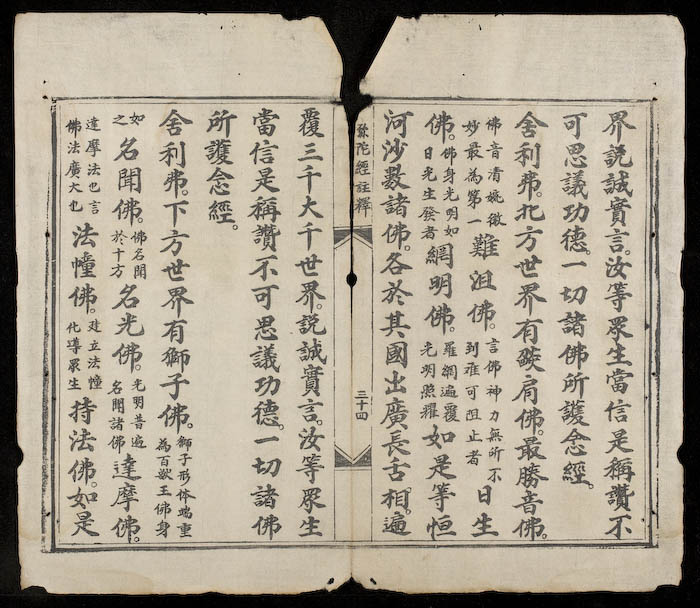 界説誠實言。汝等眾生當信是稱讚不
可思議功德。一切諸佛所護念經。
舍利弗。北方世界有燄肩佛。最勝音佛。
佛音清婉微妙最為第一難沮佛。言佛神力無所不到难可阻止者日生
佛。佛身光明如日光生發者網明佛。羅網遍覆光明照耀如是等恒
河沙數諸佛。各於其國出廣長舌相。遍
彌陀經註釋
三十四
覆三千大千世界。説誠實言。汝等眾生
當信是稱讚不可思議功德。一切諸佛
所護念經。
舍利弗。下方世界有獅子佛。獅子形体端重為百獸王佛身
如之名聞佛。佛名聞於十方名光佛。光明普遍名聞諸佛達摩佛。
達摩法也言佛法廣大也法幢佛。建立法幢化導眾生持法佛。如是